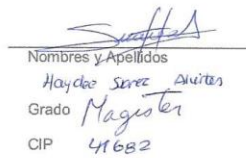 Nombres y Apellidos
Haydee Suarez Alvites
Grado Magister
CIP 41682